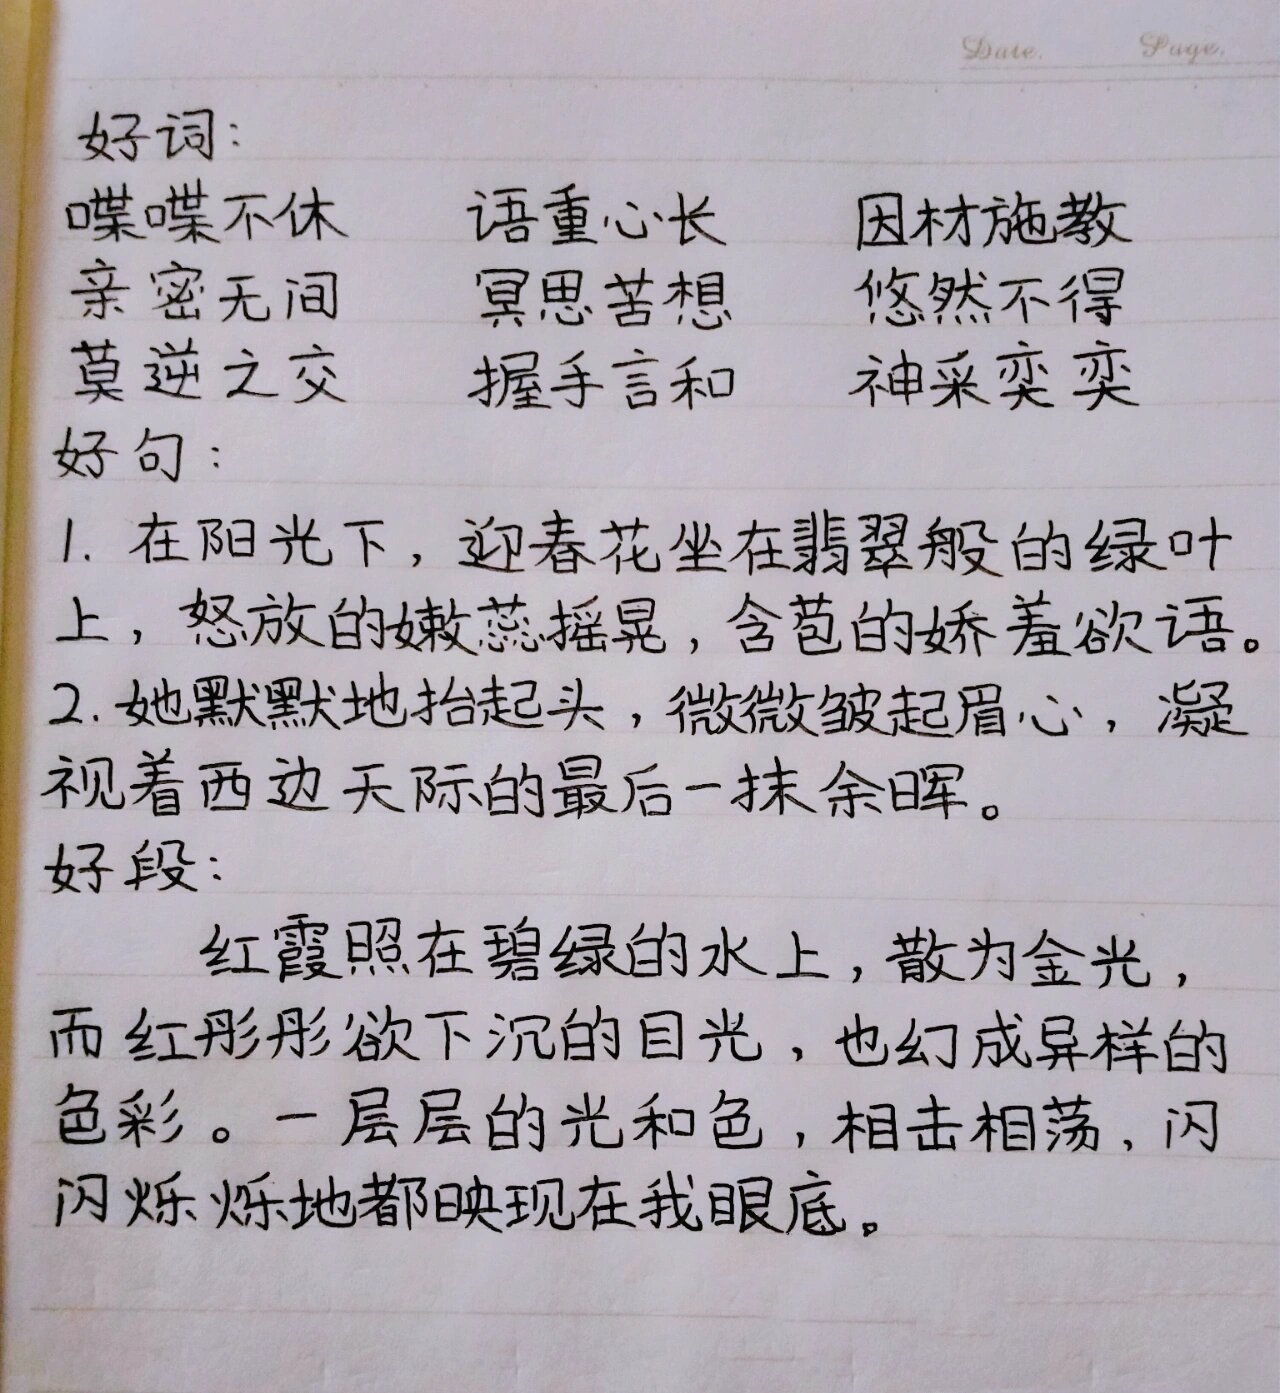 Date. Page.
好词:
喋喋不休 语重心长 因材施教
亲密无间 冥思苦想 悠然不得
莫逆之交 握手言和 神采奕奕
好句:
1. 在阳光下，迎春花坐在翡翠般的绿叶
上，怒放的嫩蕊摇晃，含苞的娇羞欲语。
2. 她默默地抬起头，微微皱起眉心，凝
视着西边天际的最后一抹余晖。
好段:
红霞照在碧绿的水上，散为金光，
而红彤彤欲下沉的目光，也幻成异样的
色彩。一层层的光和色，相击相荡，闪
闪烁烁地都映现在我眼底。